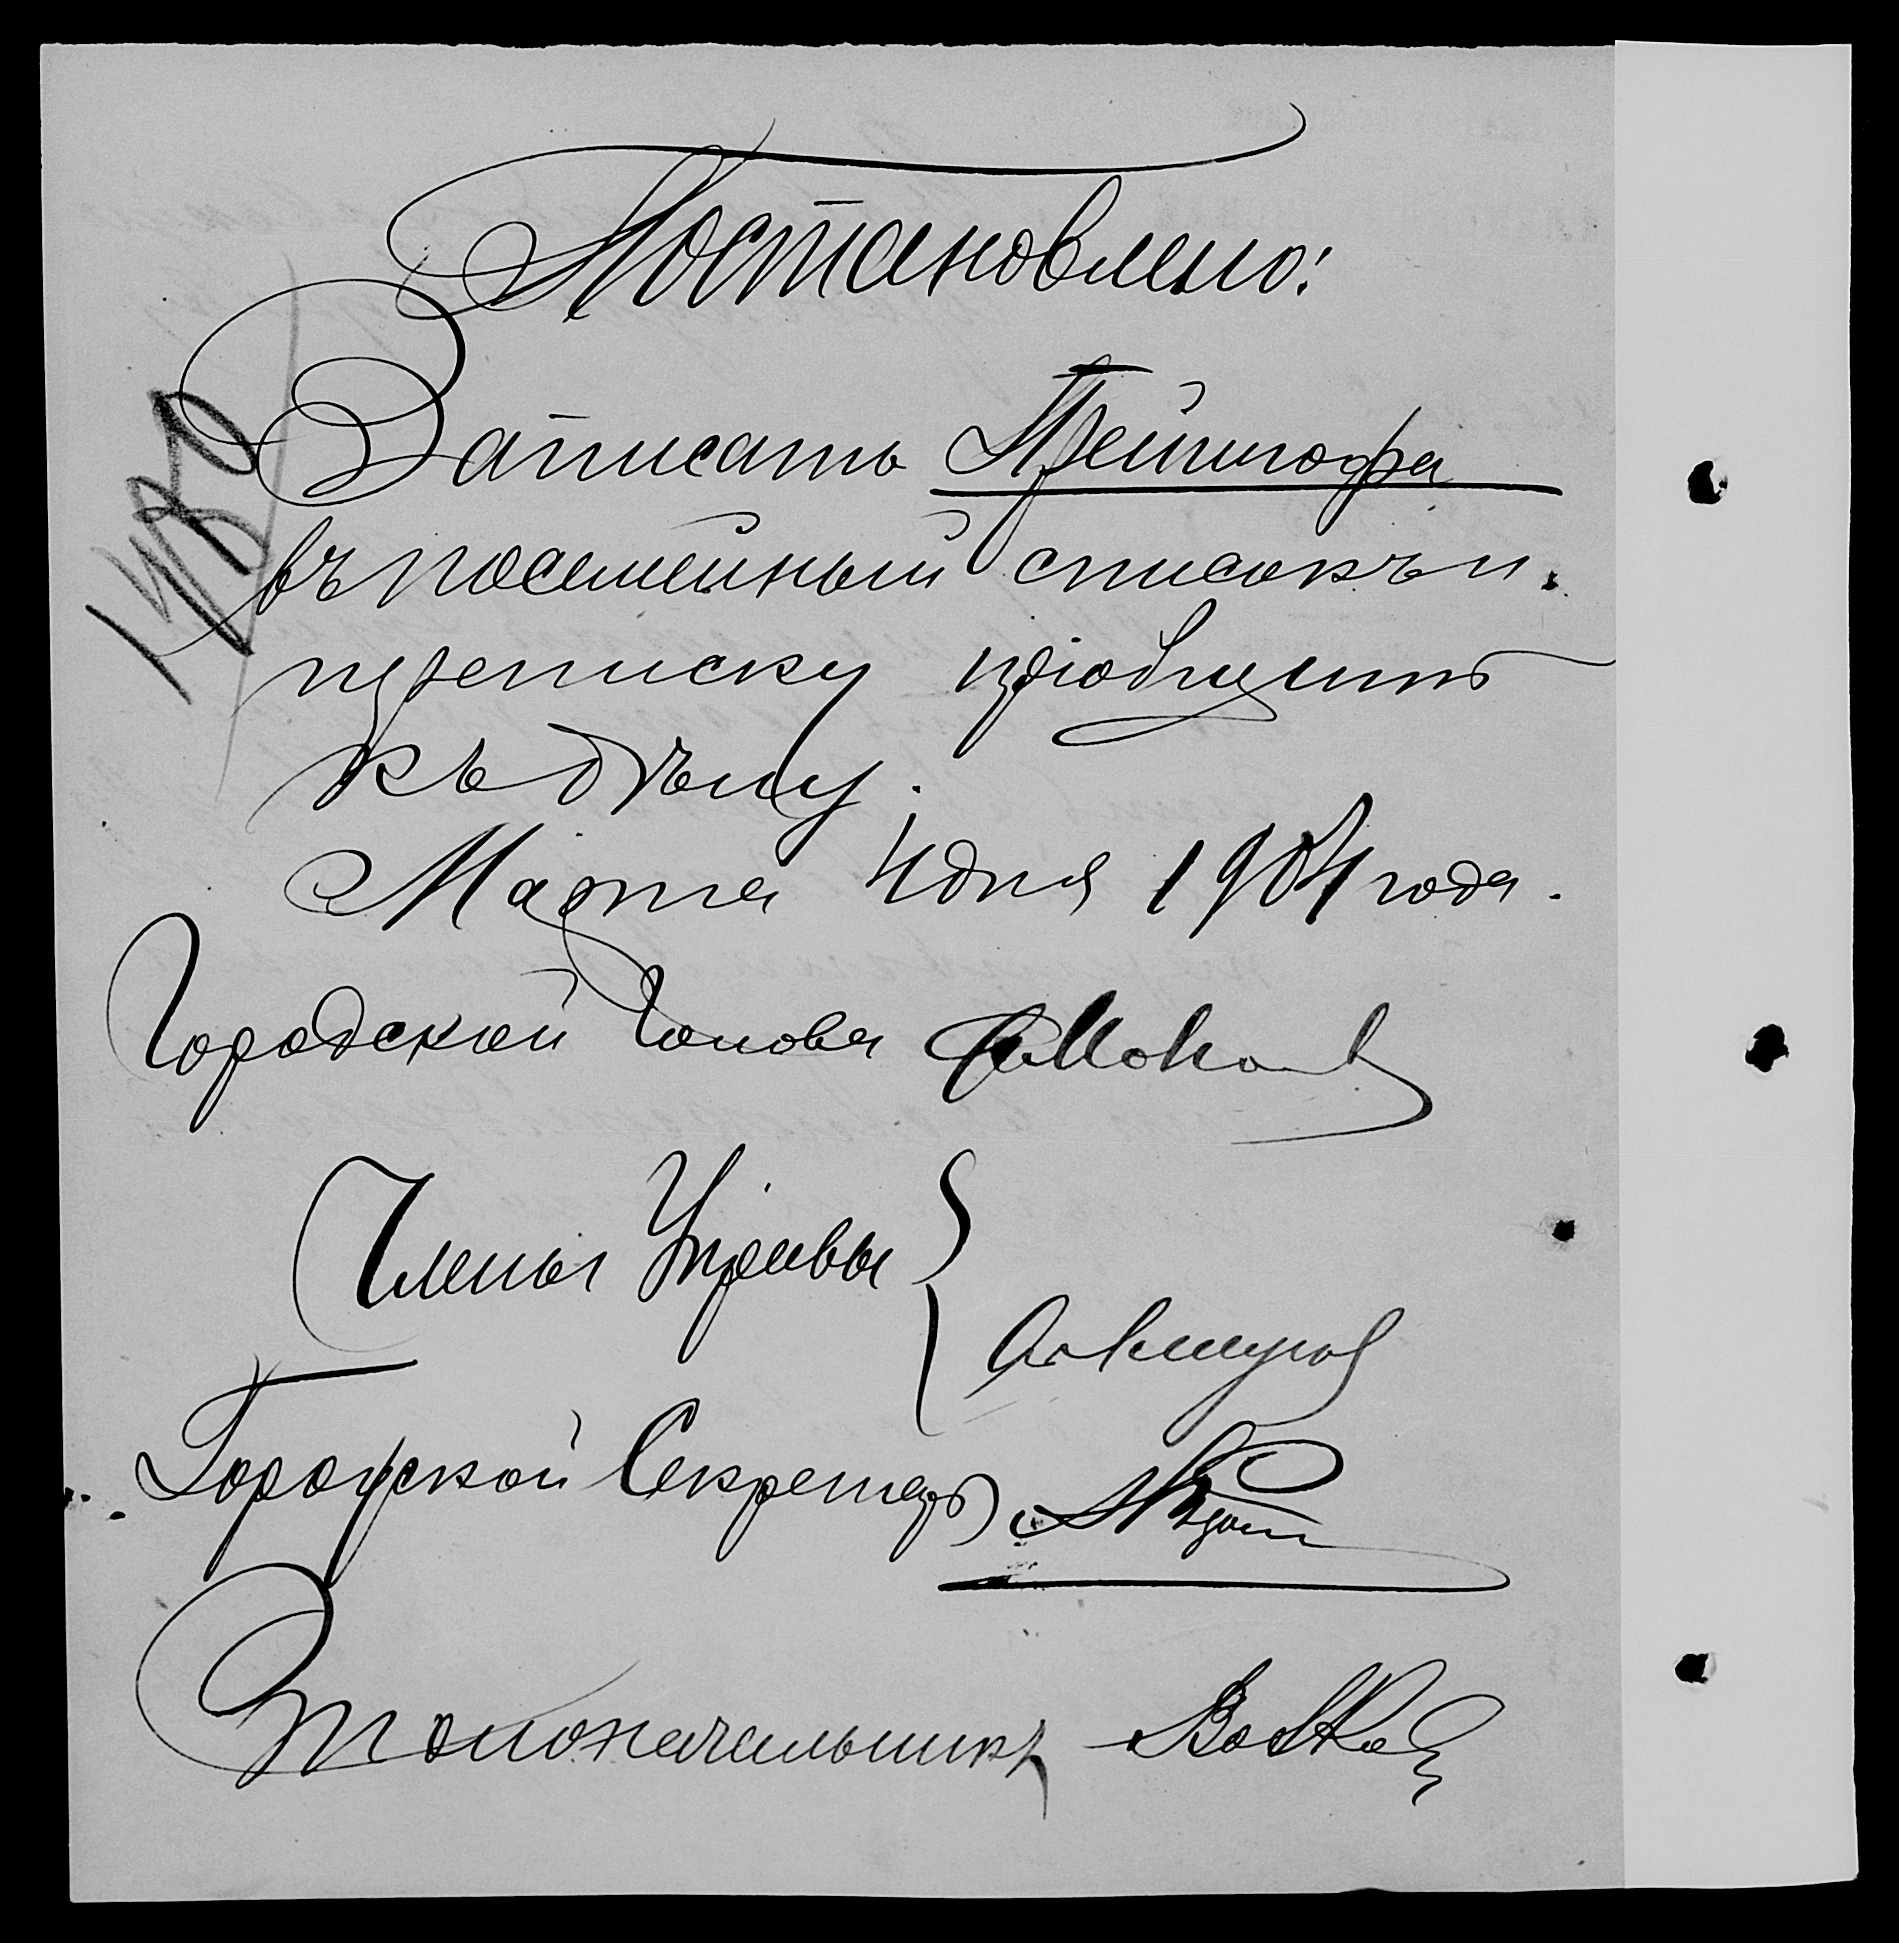 Постановлено:
Записать Трейшгофа
въ посемейный списокъ и
переписку пріобщить
къ дѣлу.
Марта 4 дня 1904 года.
Городской Голова
Члены Управы
Городской Секретарь
Столоначальникъ